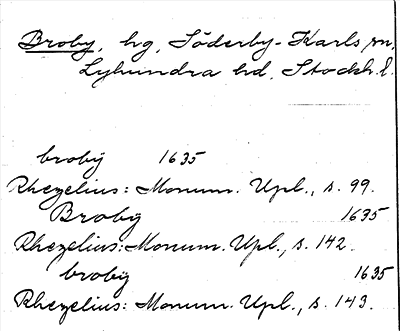 Broby, hg, Söderby-Karls sn,
Lyhundra hd, Stockh. l.
broby 1635
Rhezelius: Monum. Upl., s. 99.
Broby 1635
Rhezelius: Monum. Upl., s. 142.
broby 1635
Rhezelius: Monum. Upl., s. 143.